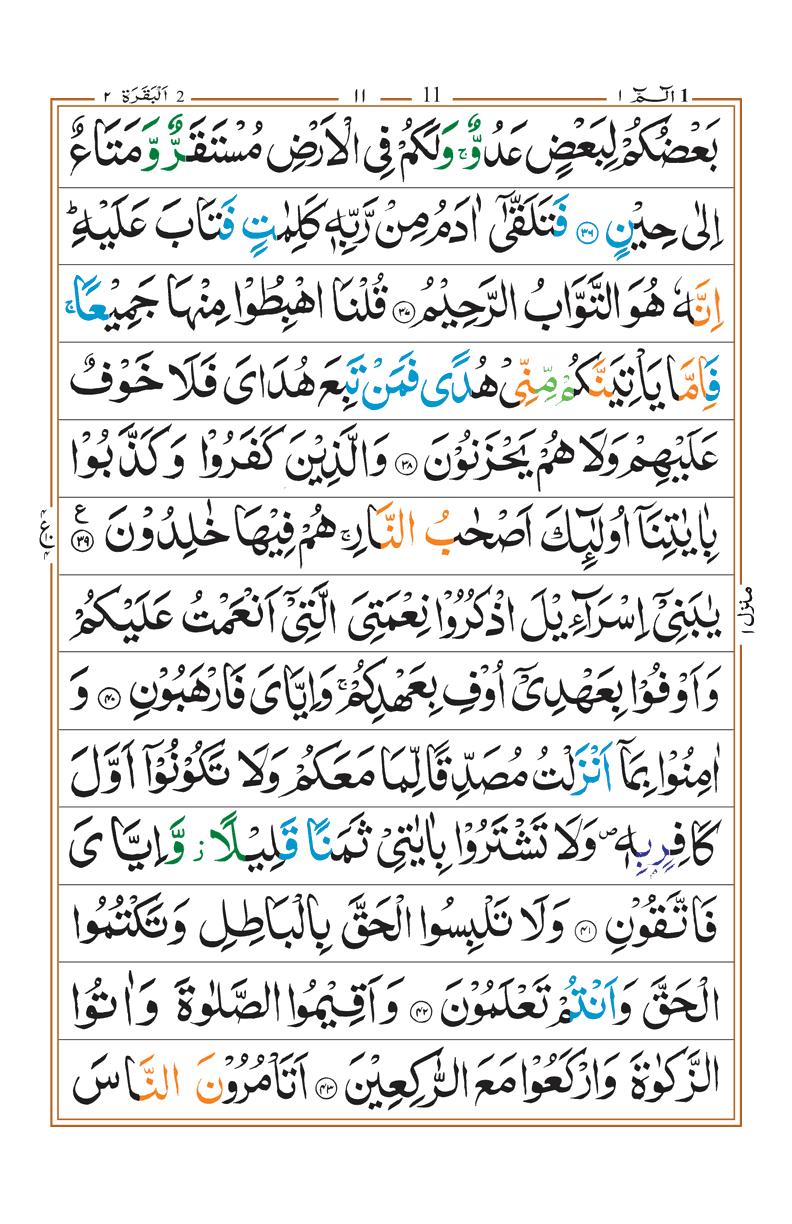 الٓـمّٓ ١ 1 11 ١١ 2 اَلْبَقَرَة ٢
بَعْضُكُمْ لِبَعْضٍ عَدُوٌّ ۚ وَلَكُمْ فِی الْاَرْضِ مُسْتَقَرٌّ وَّ مَتَاعٌ
اِلٰی حِیْنٍ ﴿۳۶﴾ فَتَلَقّٰۤی اٰدَمُ مِنْ رَّبِّهٖ كَلِمٰتٍ فَتَابَ عَلَیْهِ ؕ
اِنَّهٗ هُوَ التَّوَّابُ الرَّحِیْمُ ﴿۳۷﴾ قُلْنَا اهْبِطُوْا مِنْهَا جَمِیْعًا ۚ
فَاِمَّا یَاْتِیَنَّكُمْ مِّنِّیْ هُدًی فَمَنْ تَبِعَ هُدَایَ فَلَا خَوْفٌ
عَلَیْهِمْ وَلَا هُمْ یَحْزَنُوْنَ ﴿۳۸﴾ وَالَّذِیْنَ كَفَرُوْا وَ كَذَّبُوْا
بِاٰیٰتِنَاۤ اُولٰٓئِكَ اَصْحٰبُ النَّارِ ۚ هُمْ فِیْهَا خٰلِدُوْنَ ﴿۳۹﴾ ع
یٰبَنِیْۤ اِسْرَآءِیْلَ اذْكُرُوْا نِعْمَتِیَ الَّتِیْۤ اَنْعَمْتُ عَلَیْكُمْ
وَ اَوْفُوْا بِعَهْدِیْۤ اُوْفِ بِعَهْدِكُمْ ۚ وَ اِیَّایَ فَارْهَبُوْنِ ﴿۴۰﴾ وَ
اٰمِنُوْا بِمَاۤ اَنْزَلْتُ مُصَدِّقًا لِّمَا مَعَكُمْ وَلَا تَكُوْنُوْۤا اَوَّلَ
كَافِرٍۭ بِهٖ ۪ وَلَا تَشْتَرُوْا بِاٰیٰتِیْ ثَمَنًا قَلِیْلًا ؗ وَّ اِیَّایَ
فَاتَّقُوْنِ ﴿۴۱﴾ وَلَا تَلْبِسُوا الْحَقَّ بِالْبَاطِلِ وَ تَكْتُمُوا
الْحَقَّ وَ اَنْتُمْ تَعْلَمُوْنَ ﴿۴۲﴾ وَ اَقِیْمُوا الصَّلٰوةَ وَ اٰتُوا
الزَّكٰوةَ وَ ارْكَعُوْا مَعَ الرّٰكِعِیْنَ ﴿۴۳﴾ اَتَاْمُرُوْنَ النَّاسَ
منزل ١